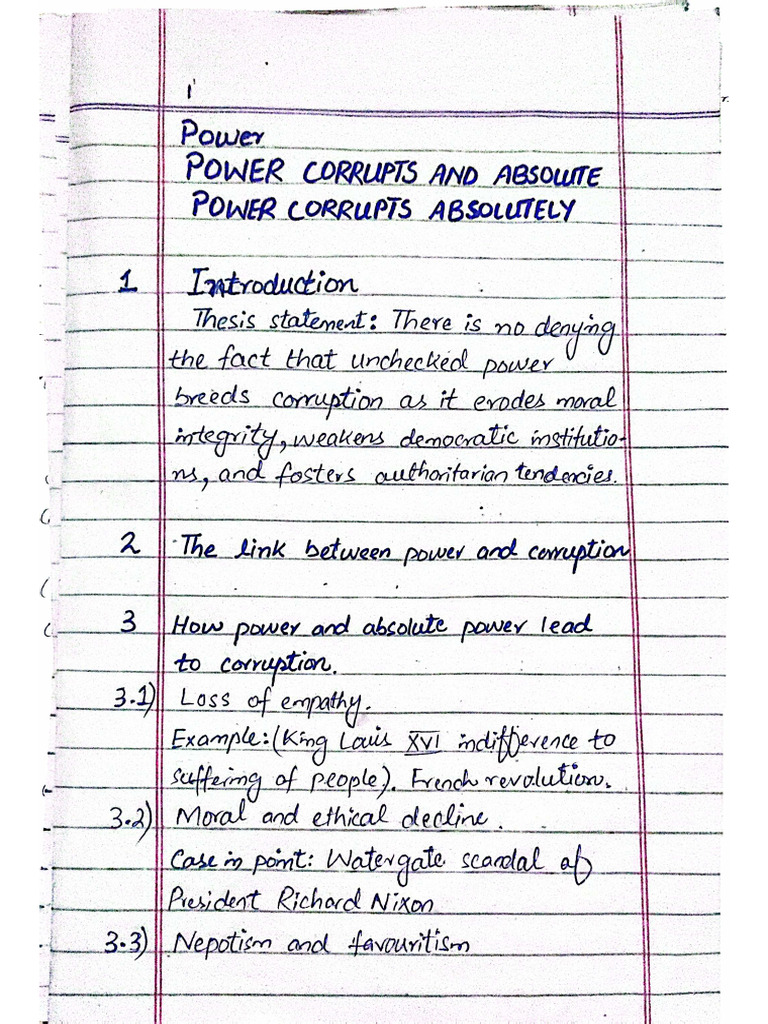 Power
POWER CORRUPTS AND ABSOLUTE
POWER CORRUPTS ABSOLUTELY
1 Introduction
Thesis statement: There is no denying
the fact that unchecked power
breeds corruption as it erodes moral
integrity, weakens democratic institutio-
ns, and fosters authoritarian tendencies.
2 The link between power and corruption
3 How power and absolute power lead
to corruption.
3.1) Loss of empathy.
Example: (King Louis XVI indifference to
suffering of people). French revolution.
3.2) Moral and ethical decline.
Case in point: Watergate scandal of
President Richard Nixon
3.3) Nepotism and favouritism